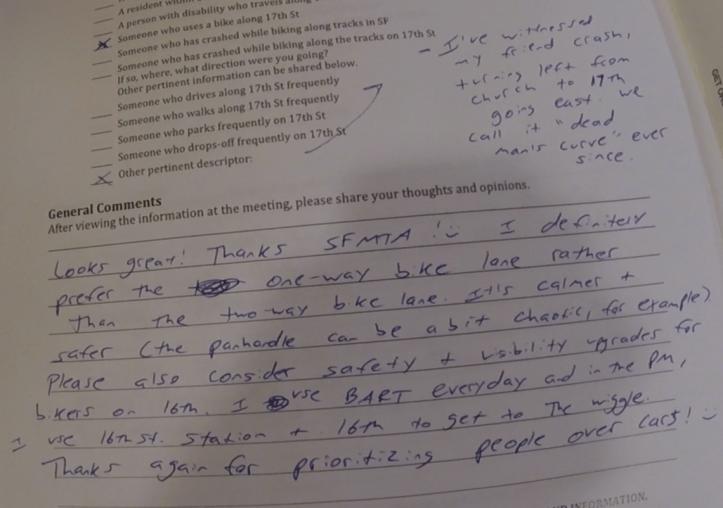 A resident
A person with disability who travels along
Someone who uses a bike along 17th St
Someone who has crashed while biking along tracks in SF
Someone who has crashed while biking along the tracks on 17th St
If so, where, what direction were you going?
Other pertinent information can be shared below.
Someone who drives along 17th St frequently
Someone who walks along 17th St frequently
Someone who parks frequently on 17th St
Someone who drops-off frequently on 17th St
Other pertinent descriptor:
- I've witnessed
my friend crash,
turning left from
church to 17th
going east. we
call it "dead
man's curve" ever
since.
General Comments
After viewing the information at the meeting, please share your thoughts and opinions.
Looks great! Thanks SFMTA! I definitely
prefer the one-way bike lane rather
than the two-way bike lane. It's calmer +
safer (the panhandle can be a bit chaotic, for example)
Please also consider safety + visibility upgrades for
bikers on 16th. I use BART everyday and in the PM,
I use 16th st. station + 16th to get to The wiggle.
Thanks again for prioritizing people over cars!
INFORMATION.